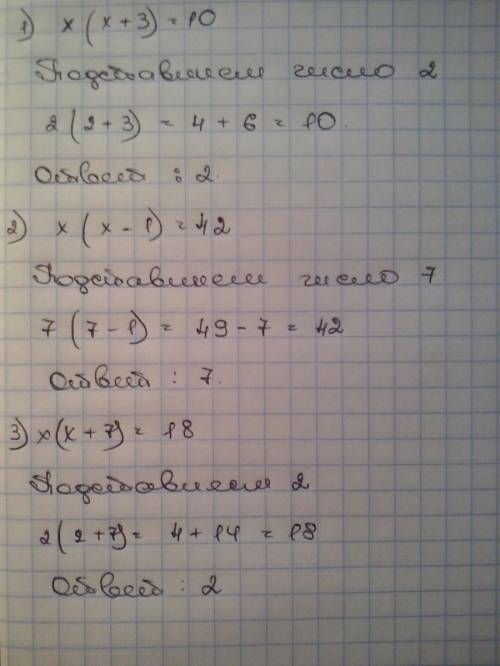 1) x(x+3)=10
Подставляем число 2
2(2+3) = 4+6 = 10.
Ответ : 2.
2) x(x-1)=42
Подставляем число 7
7(7-1) = 49-7 = 42
Ответ : 7.
3) x(x+7)= 18
Подставляем 2
2(2+7)= 4+14 = 18
Ответ : 2